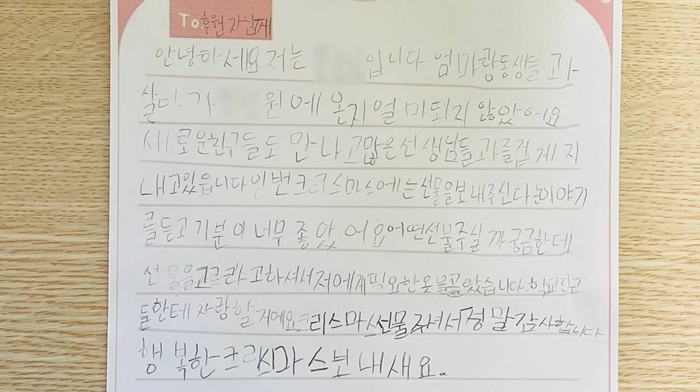 To 후원자님께
안녕하세요 저는 입니다 엄마랑동생들과
살다가 원에 온지얼마되지 않았어요
새로운친구들도 만나고많은선생님들과즐겁게지
내고있읍니다이번크리스마스에는선물을보내주신다는이야기
를듣고기분이너무좋았어요어떤선물주실까궁금한데
선물을고르라고하셔서저에게필요한옷을골랐습니다.학교친구
들한테자랑할거에요크리스마스선물주셔서정말감사합니다
행복한크리스마스보내새요.